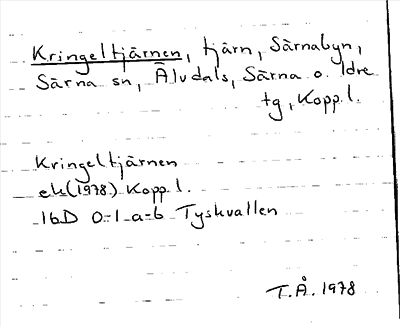 Kringeltjärnen, tjärn, Särnabyn,
Särna sn, Älvdals, Särna o. Idre
tg, Kopp. l.
Kringeltjärnen
ek (1978) Kopp l.
16D 0-1 a-b Tyskvallen
T.Å. 1978